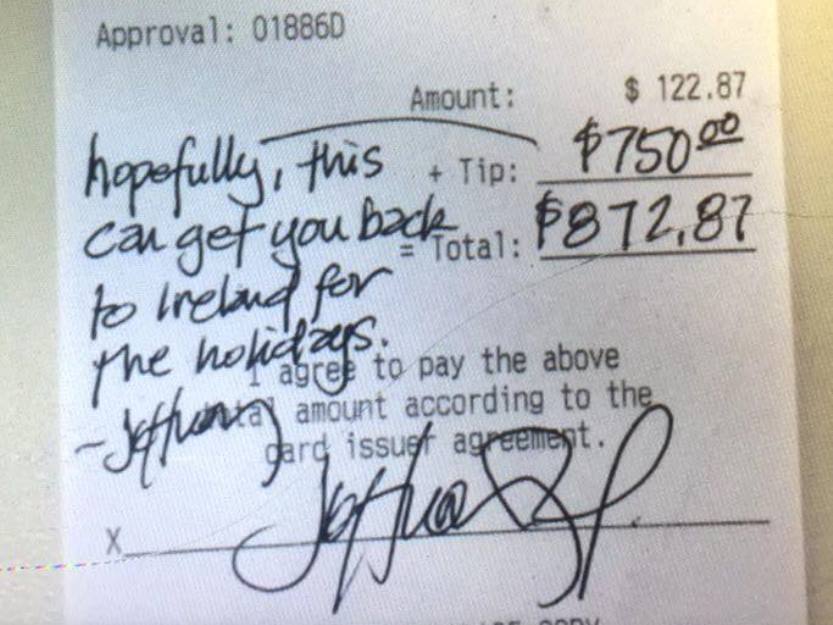 Approval: 01886D
Amount: $ 122.87
+ Tip: $750.00
= Total: $872.87
hopefully, this
can get you back
to Ireland for
the holidays.
I agree to pay the above
total amount according to the
card issuer agreement.
X
COPY